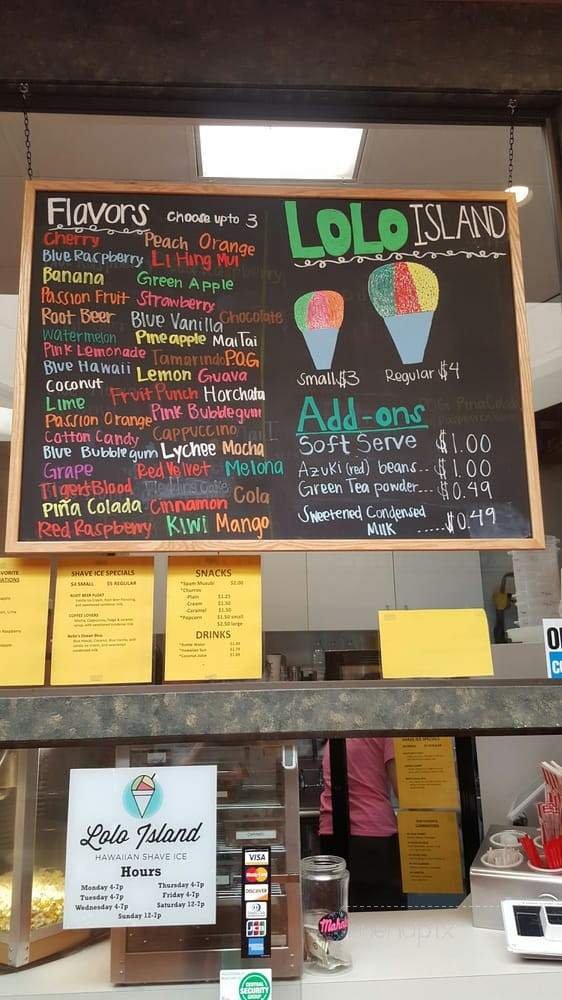 Flavors choose up to 3
Cherry Peach Orange
Blue Raspberry Li Hing Mui
Banana Green Apple
Passion Fruit Strawberry
Root Beer Blue Vanilla Chocolate
Watermelon Pineapple Mai Tai
Pink Lemonade Tamarindo P.O.G
Blue Hawaii Lemon Guava
Coconut Fruit Punch Horchata
Lime Pink Bubblegum
Passion Orange
Cotton Candy Cappuccino
Blue Bubblegum Lychee Mocha
Grape Red Velvet Melona
Tigers Blood Wedding Cake Cola
Piña Colada Cinnamon
Red Raspberry Kiwi Mango
LOLO ISLAND
Small $3 Regular $4
Add-ons
Soft Serve $1.00
Azuki (red) beans.. $1.00
Green Tea powder... $0.49
Sweetened Condensed
Milk ..... $0.49
SHAVE ICE SPECIALS
$4 SMALL $5 REGULAR
ROOT BEER FLOAT
COFFEE LOVERS
SNACKS
*Spam Musubi $2.00
*Churros
Plain $1.25
Cream $1.50
Caramel $1.50
*Popcorn $1.50 small
$2.50 large
DRINKS
Lolo Island
HAWAIIAN SHAVE ICE
Hours
Monday 4-7p Thursday 4-7p
Tuesday 4-7p Friday 4-7p
Wednesday 4-7p Saturday 12-7p
Sunday 12-7p
VISA
MasterCard
DISCOVER
JCB
Mahalo
CENTRAL
SECURITY
GROUP
SHAVE ICE SPECIALS
menupix